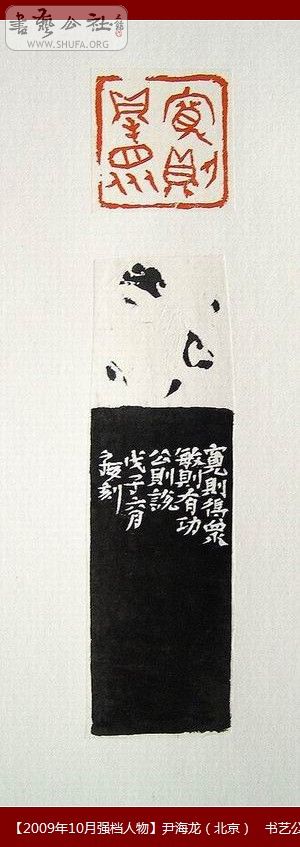 書藝公社
WWW.SHUFA.ORG
寬則
得眾
寬則得眾
敏則有功
公則說
戊子六月
刻
【2009年10月强档人物】尹海龙（北京） 书艺公